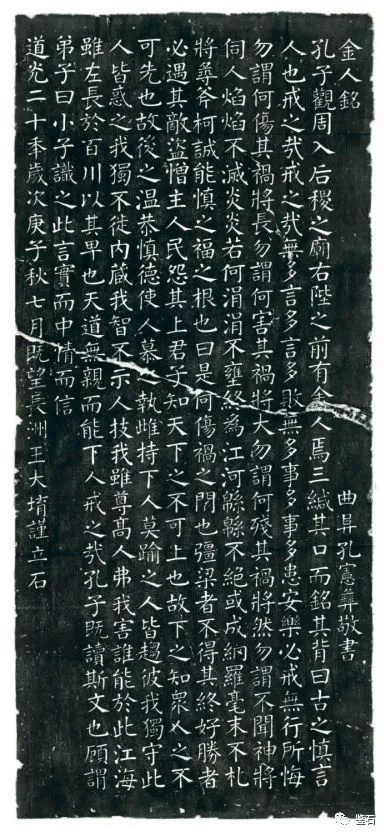 金人銘
曲阜孔憲彝敬書
孔子觀周入后稷之廟右陛之前有金人焉三緘其口而銘其背曰古之慎言
人也戒之哉戒之哉無多言多言多敗無多事多事多患安樂必戒無行所悔
勿謂何傷其禍將長勿謂何害其禍將大勿謂何殘其禍將然勿謂不聞神將
伺人焰焰不滅炎炎若何涓涓不壅終為江河緜緜不絕或成網羅毫末不札
將尋斧柯誠能慎之福之根也曰是何傷禍之門也彊梁者不得其終好勝者
必遇其敵盜憎主人民怨其上君子知天下之不可上也故下之知眾人之不
可先也故後之溫恭慎德使人慕之執雌持下人莫踰之人皆趨彼我獨守此
人皆惑之我獨不徙內藏我智不示人技我雖尊高人弗我害誰能於此江海
雖左長於百川以其卑也天道無親而能下人戒之哉孔子既讀斯文也顧謂
弟子曰小子識之此言實而中情而信
道光二十秊歲次庚子秋七月既望長洲王大堉謹立石
鉴石